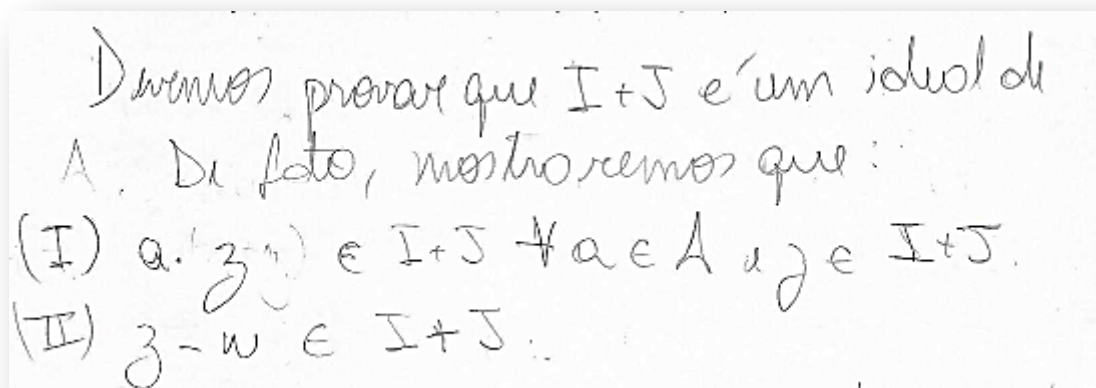 Devemos provar que I+J é um ideal de
A. De fato, mostraremos que:
(I) a. z ∈ I+J ∀ a ∈ A e z ∈ I+J.
(II) z - w ∈ I+J.